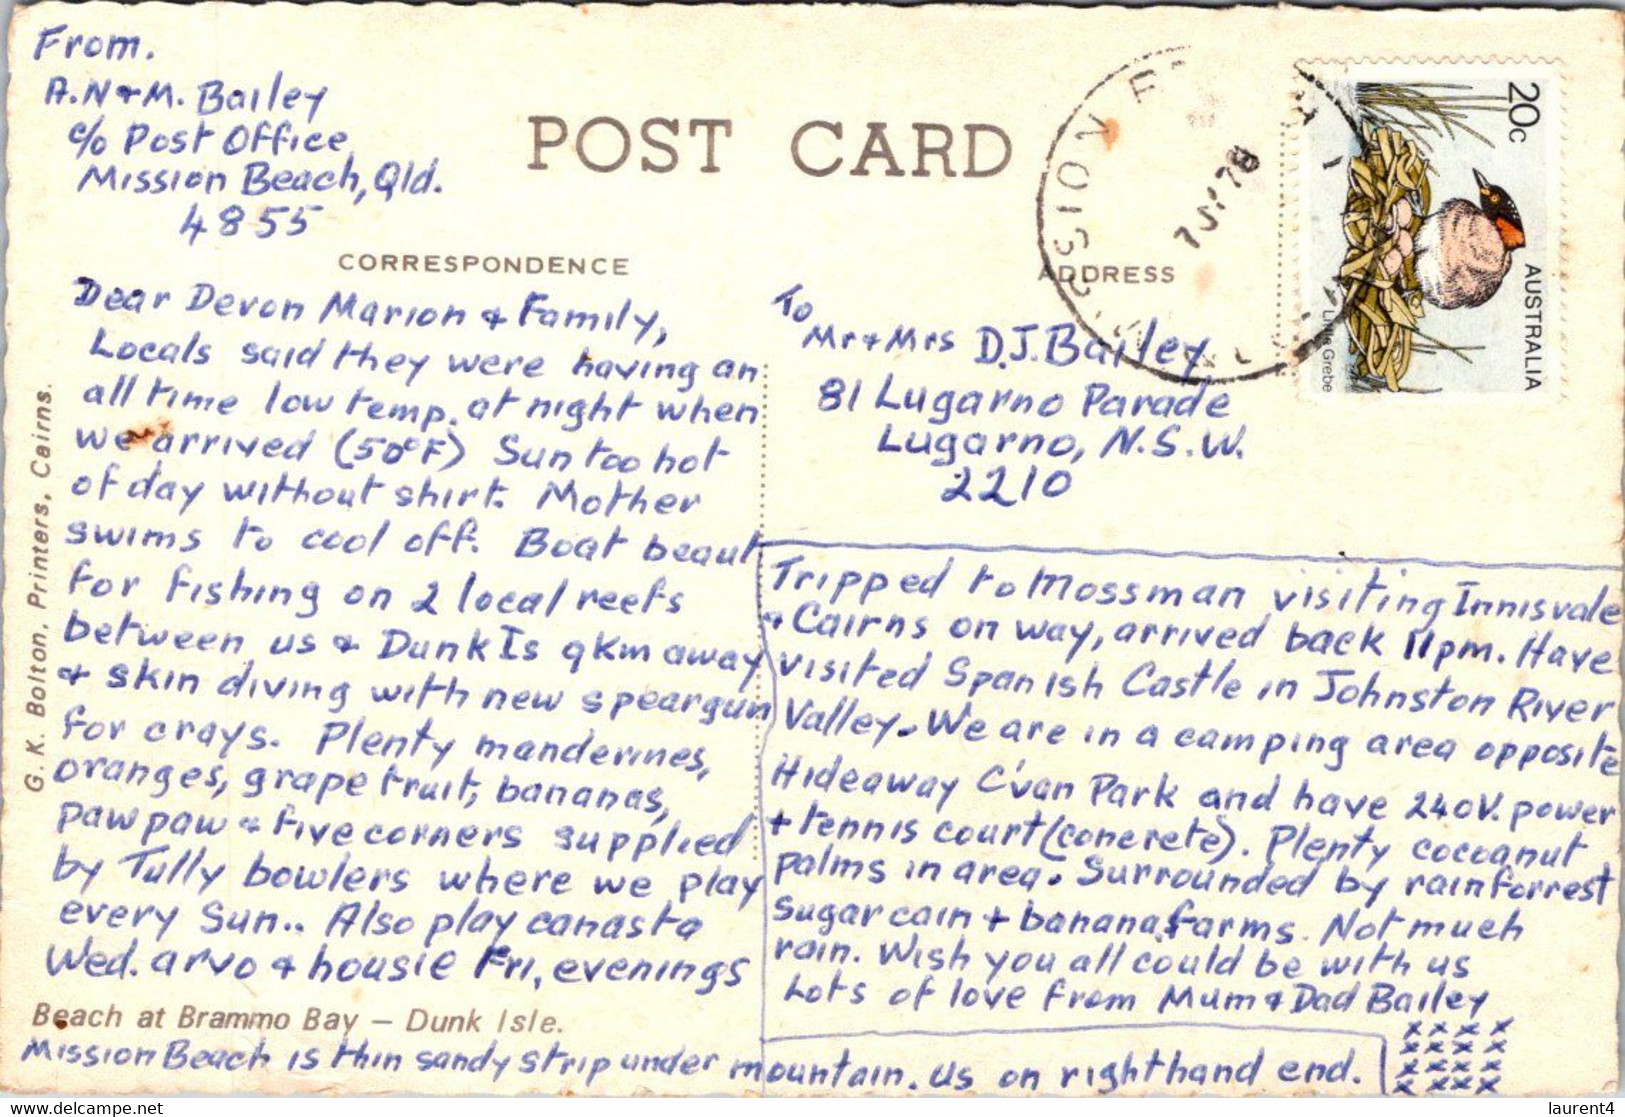 From.
A.N & M. Bailey
c/o Post Office
Mission Beach, Qld.
4855
POST CARD
CORRESPONDENCE
ADDRESS
20c
AUSTRALIA
Little Grebe
Dear Devon Marion & Family,
Locals said they were having an
all time low temp. at night when
we arrived (50°F) Sun too hot
of day without shirt. Mother
swims to cool off. Boat beaut
for fishing on 2 local reefs
between us & Dunk Is 9km away
& skin diving with new speargun
for crays. Plenty manderines,
oranges, grapefruit, bananas,
pawpaw & fivecorners supplied
by Tully bowlers where we play
every Sun.. Also play canasta
Wed. arvo & housie Fri, evenings
To
Mr & Mrs D.J. Bailey
81 Lugarno Parade
Lugarno, N.S.W.
2210
Tripped to Mossman visiting Innisvale
& Cairns on way, arrived back 11pm. Have
visited Spanish Castle in Johnston River
Valley. We are in a camping area opposite
Hideaway C'van Park and have 240V. power
+ tennis court (concrete). Plenty cocoanut
palms in area. Surrounded by rainforrest
sugar cain + banana farms. Not much
rain. Wish you all could be with us
Lots of love from Mum & Dad Bailey
x x x x
x x x x
x x x x
x x x x
Beach at Brammo Bay — Dunk Isle.
Mission Beach is thin sandy strip under mountain. us on righthand end.
G. K. Bolton, Printers, Cairns.
laurent4